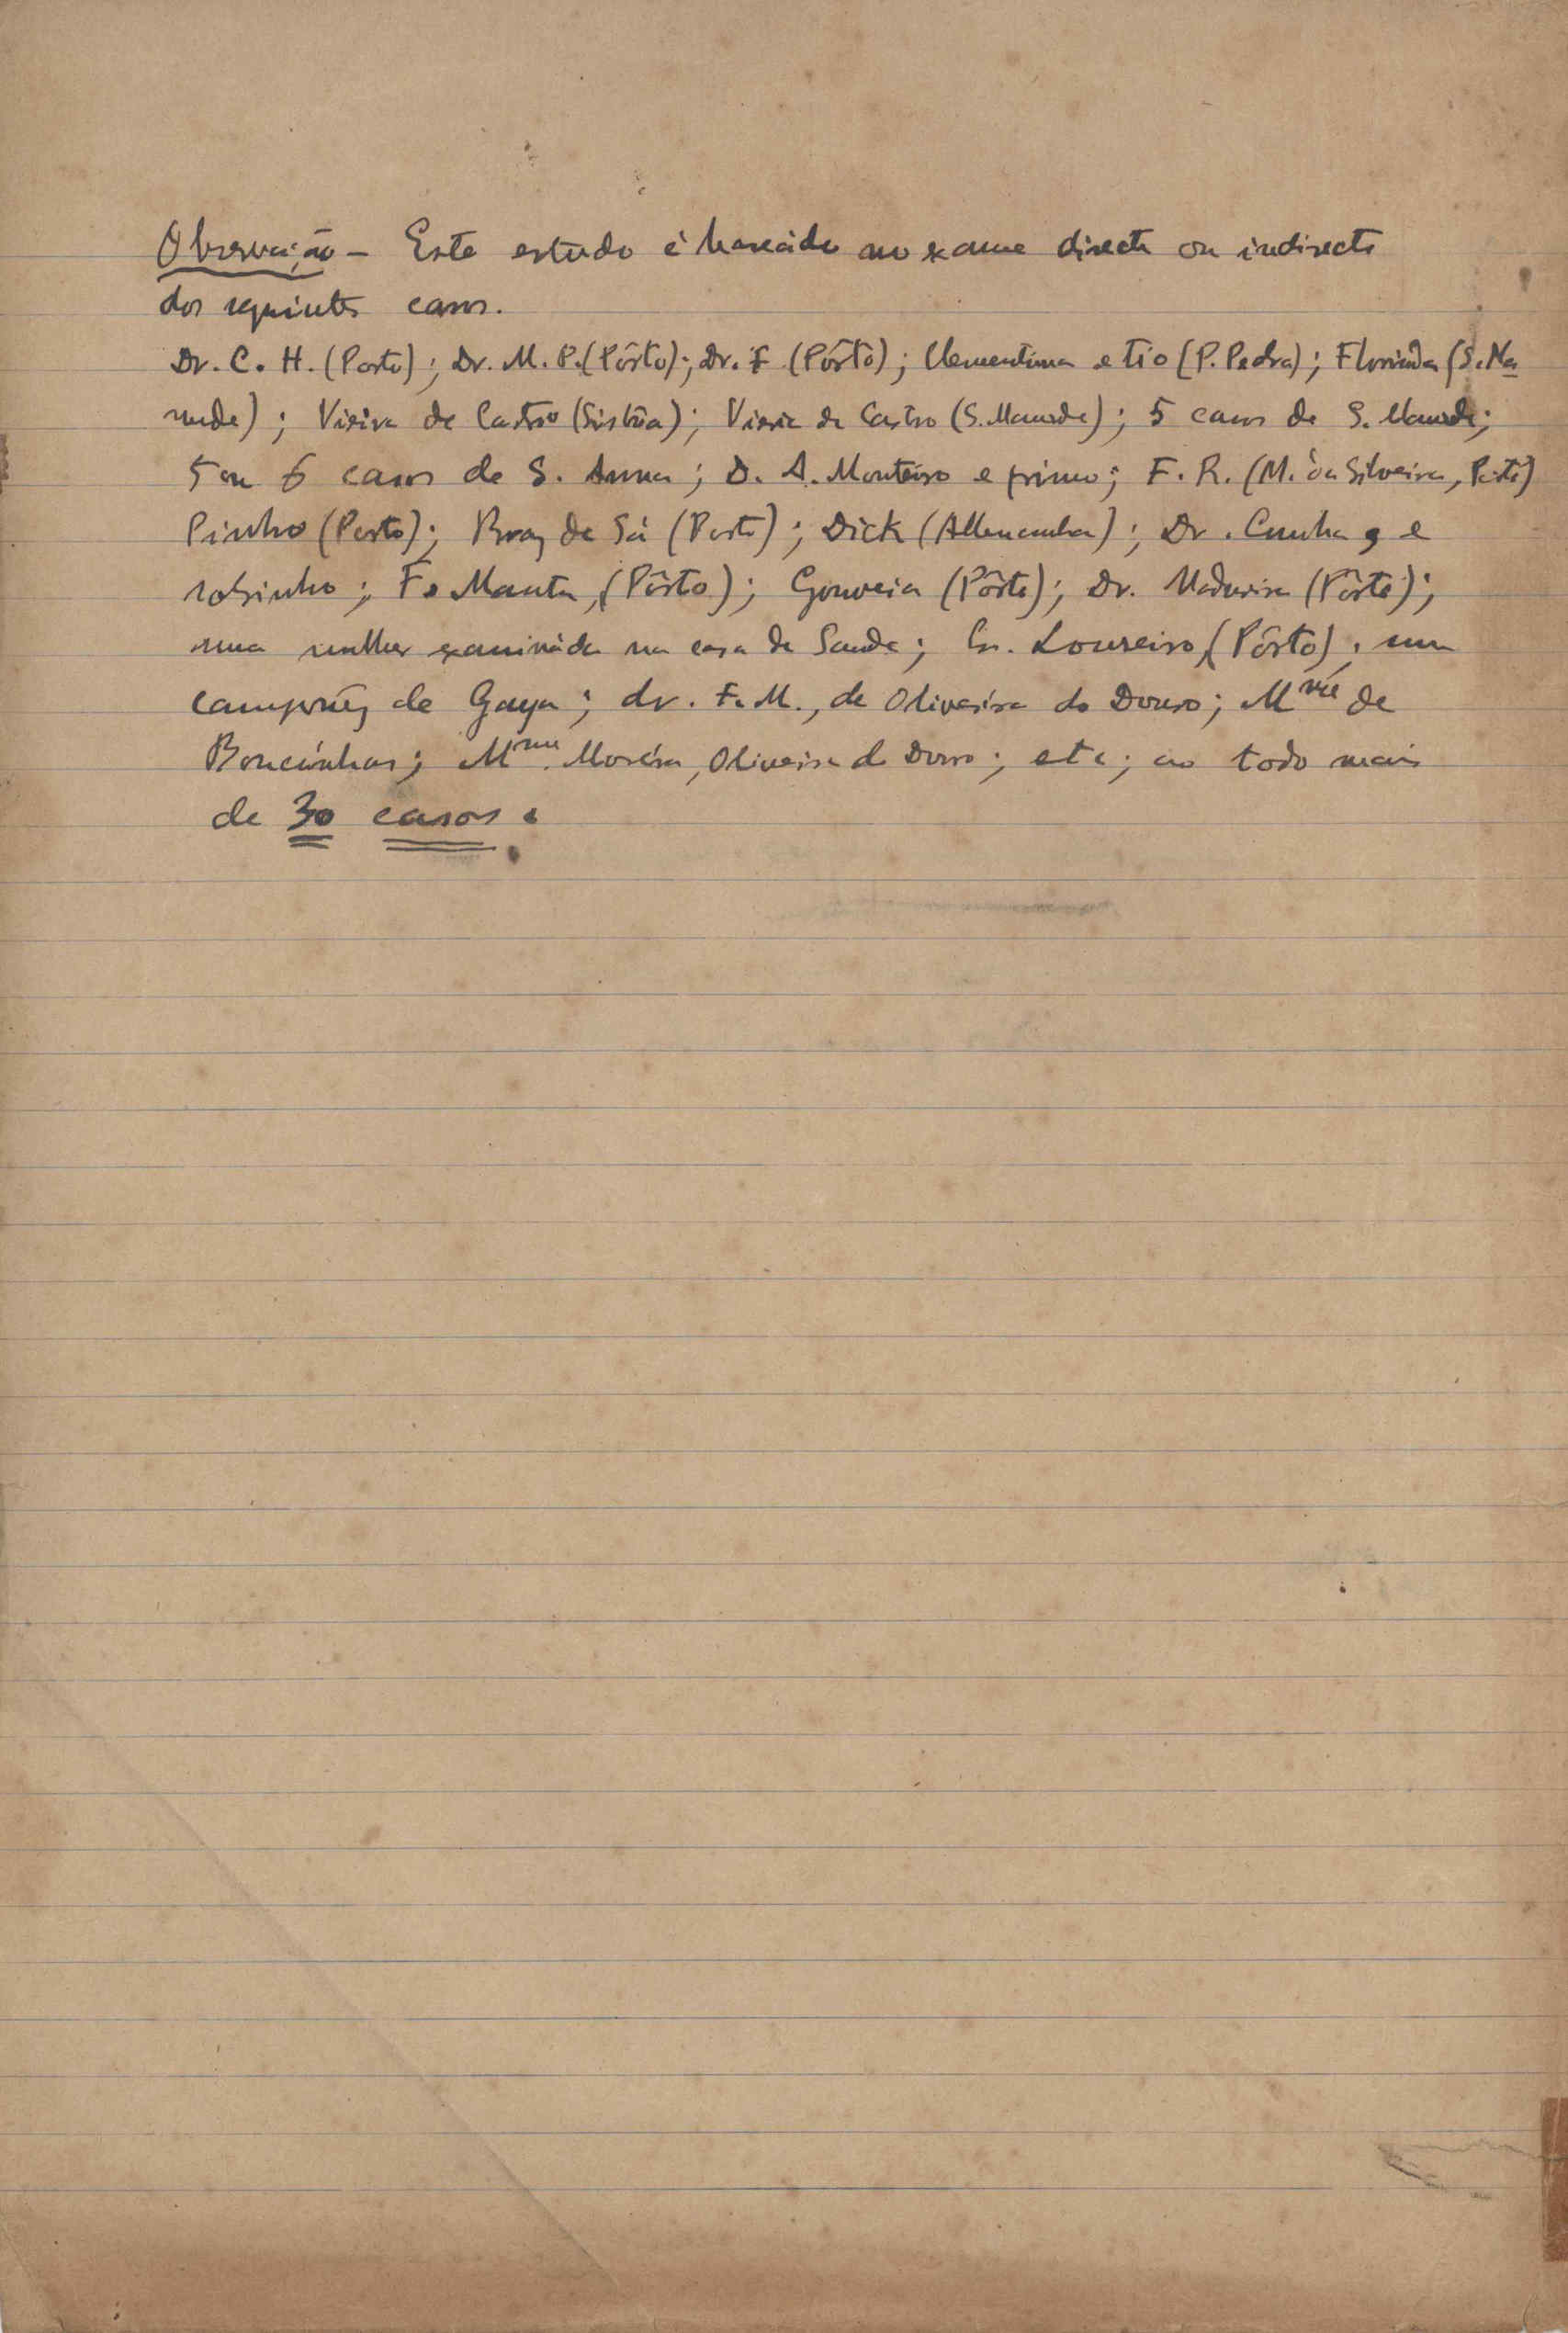 Observação - Este estudo é baseado no exame directo ou indirecto
dos seguintes casos.
Dr. C. H. (Porto); Dr. M. P. (Pôrto); Dr. F. (Pôrto); Clementina e tio (P. Pedra); Florinda (S. Ma
mede); Vieira de Castro (Lisbôa); Vieira de Castro (S. Mamede); 5 casos de S. Mamede;
5 ou 6 casos de S. Anna; D. A. Monteiro e primo; F. R. (M. da Silveira, Porto)
Pinho (Porto); Braz de Sá (Porto); Dick (Allemanha); Dr. Cunha e
sobrinho; F. Manta, (Pôrto); Gouveia (Pôrto); Dr. Madureira (Pôrto);
uma mulher examináda na casa de Saude; Loureiro, (Pôrto); um
camponêz de Gaya; dr. F. M., de Oliveira do Douro; de
Boucinhas; Mme. Moreira, Oliveira do Douro; etc; ao todo mais
de 30 casos.